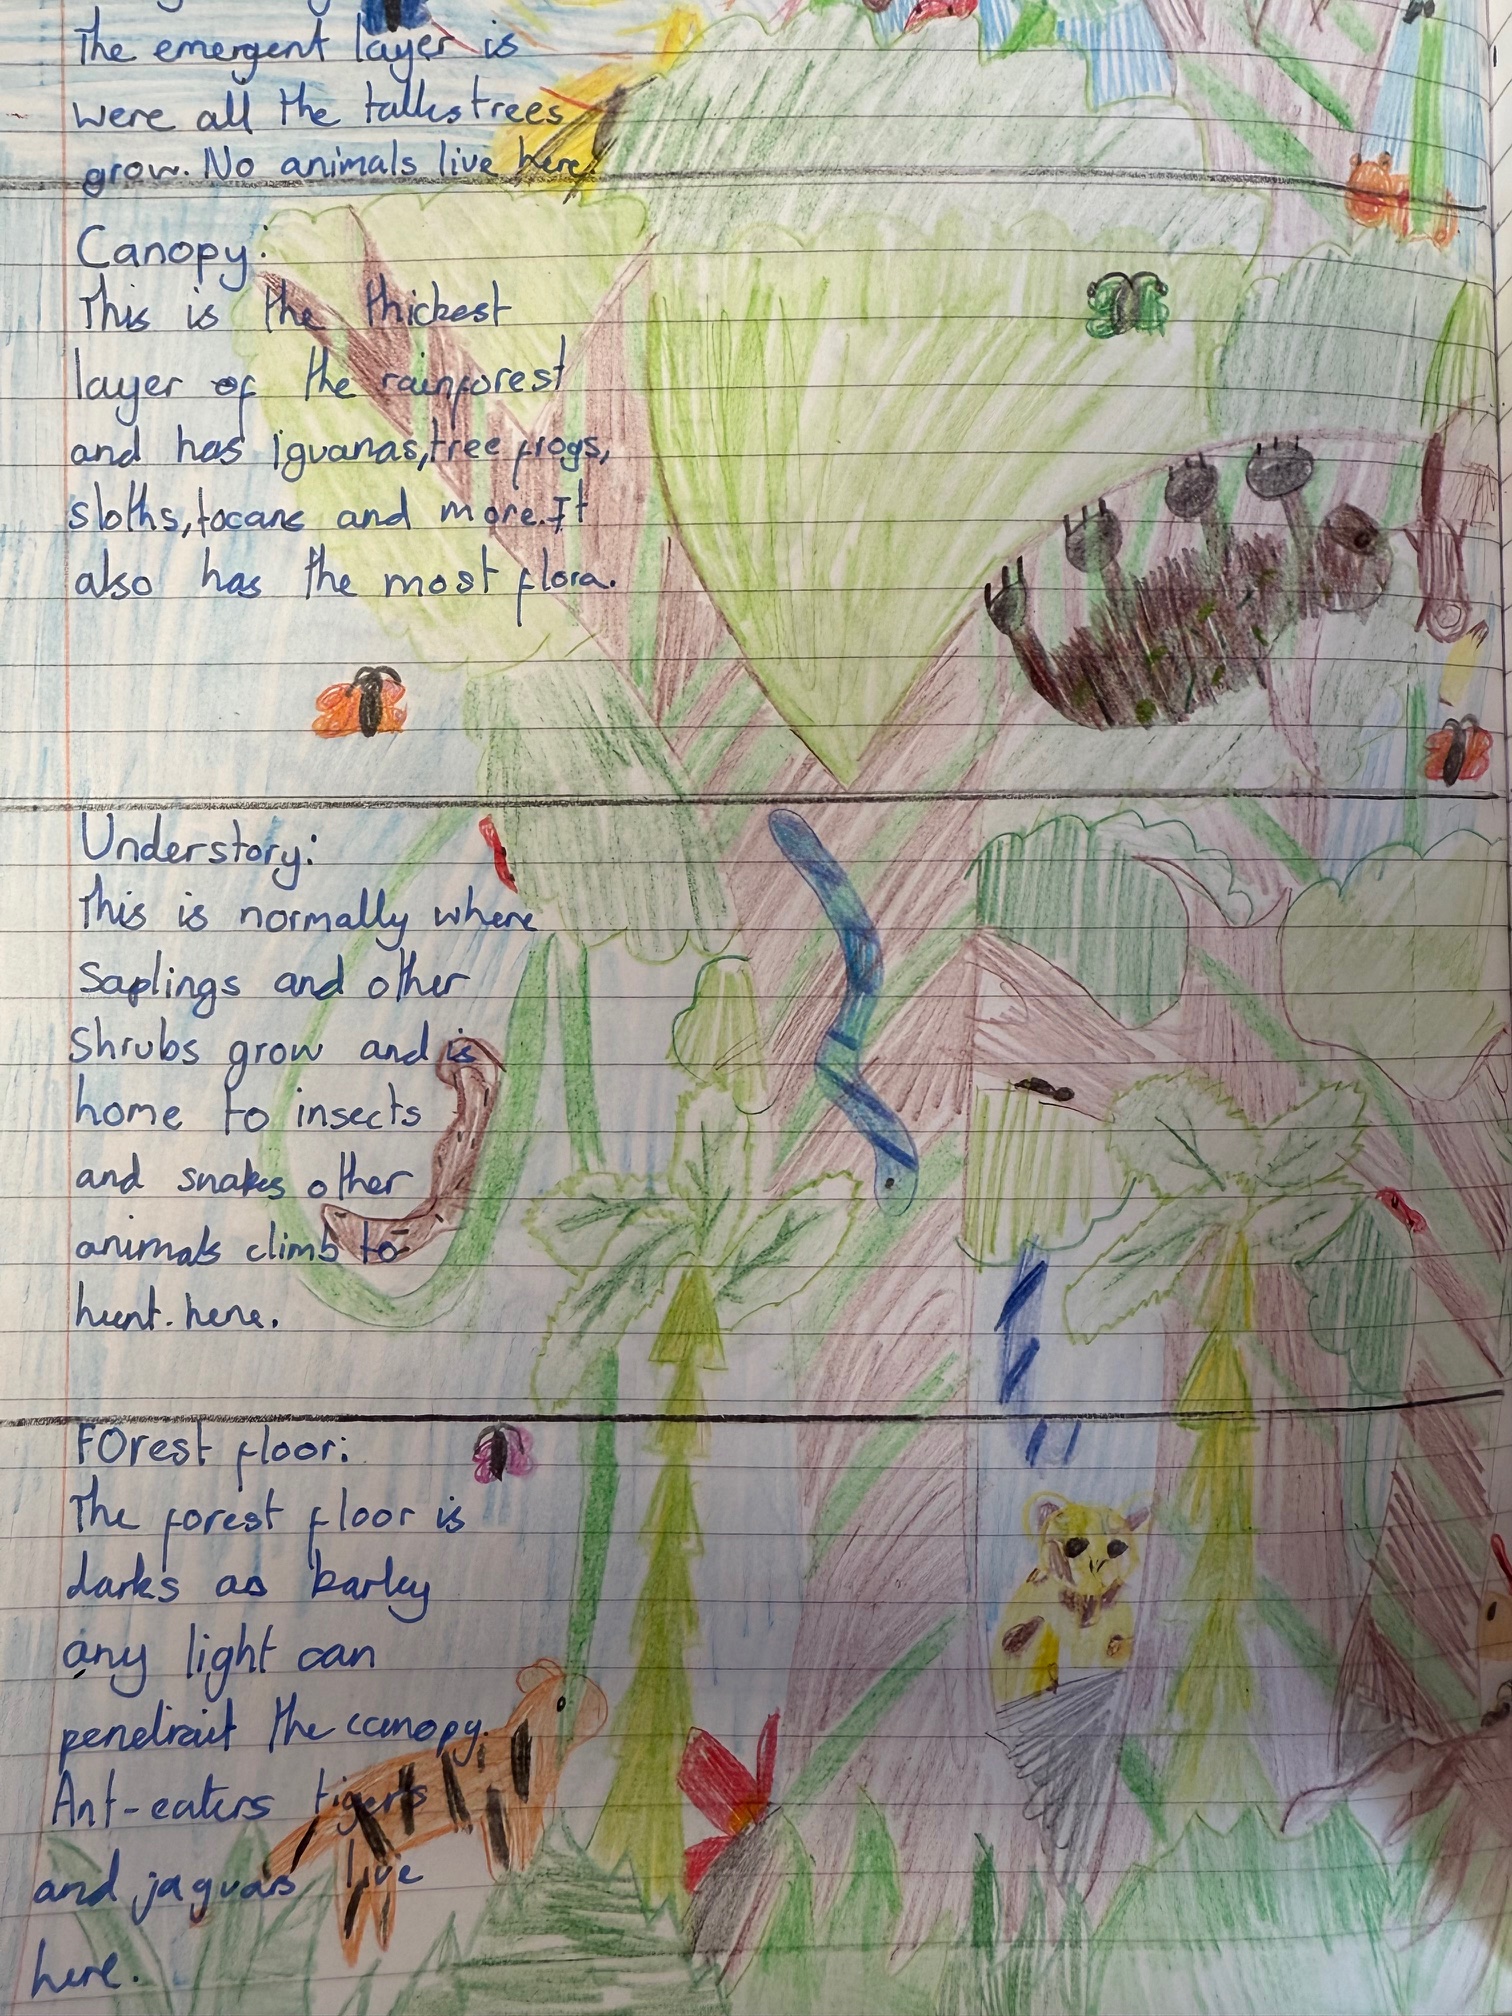 The emergent layer is
were all the talles trees
grow. No animals live here.
Canopy:
This is the thickest
layer of the rainforest
and has iguanas, tree frogs,
sloths, tocans and more. It
also has the most flora.
Understory:
This is normally where
Saplings and other
Shrubs grow and is
home to insects
and snakes other
animals climb to
hunt. here.
FOrest floor:
The forest floor is
darks as barley
any light can
penetrait the canopy.
Ant-eaters tigers
and jaguars live
here.